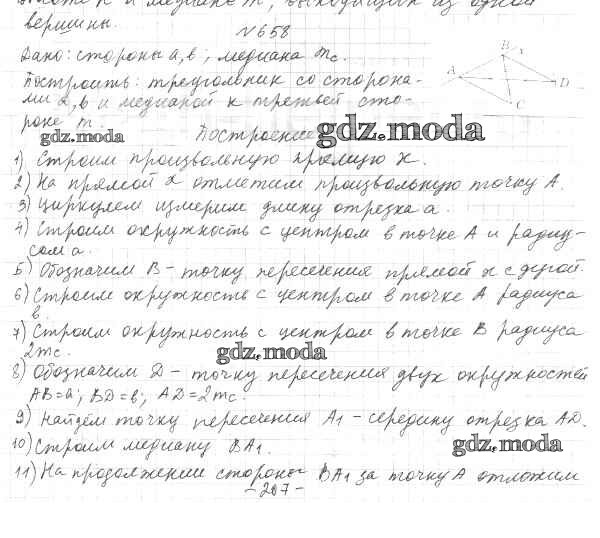 вершины.
№658
Дано: стороны a, b; медиана mc.
Построить: треугольник со сторона-
ми a, b и медианой к третьей сто-
роне m.
B x
A D
C
gdz.moda
Построение
gdz.moda
1) Строим произвольную прямую x.
2) На прямой x отметим произвольную точку A.
3) Циркулем измерим длину отрезка a.
4) Строим окружность с центром в точке A и радиу-
сом a.
5) Обозначим B - точку пересечения прямой x с дугой.
6) Строим окружность с центром в точке A радиуса
b.
7) Строим окружность с центром в точке B радиуса
2mc.
gdz.moda
8) Обозначим D - точку пересечения двух окружностей
AB=a; BD=b; AD=2mc.
9) Найдём точку пересечения A1 - середину отрезка AD.
10) Строим медиану BA1.
gdz.moda
11) На продолжении стороны BA1 за точку A отложим
-207-